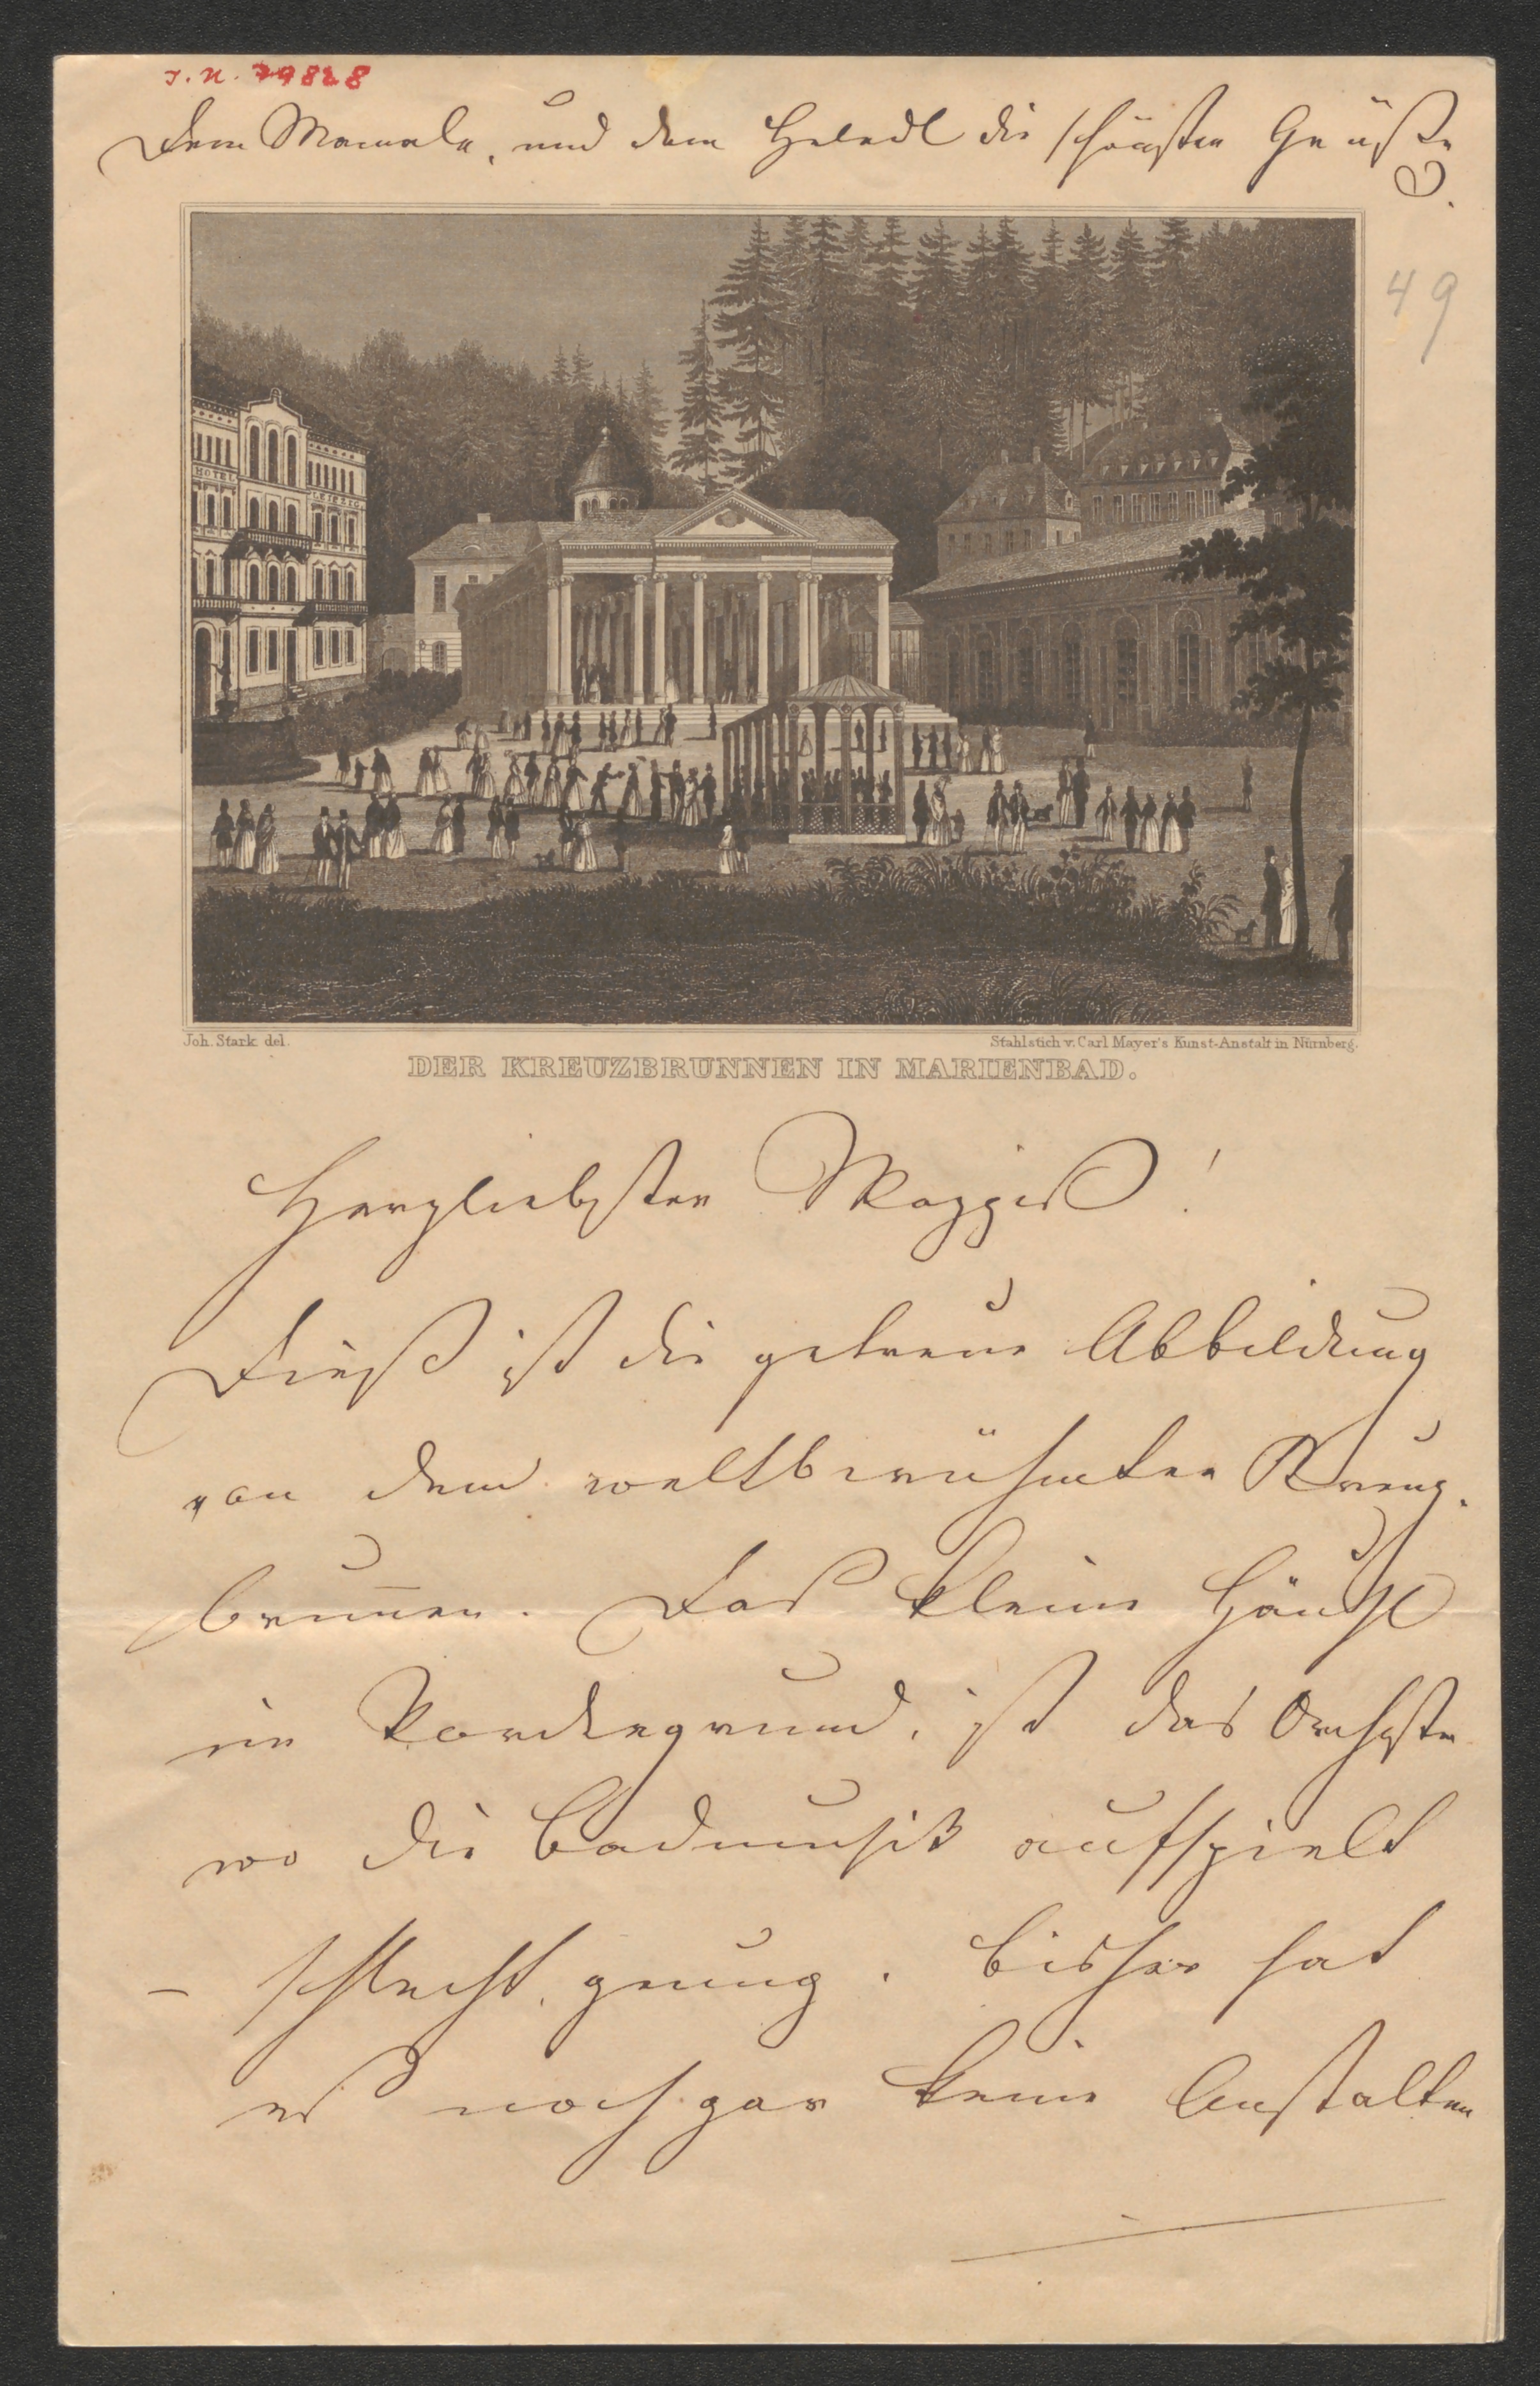 I. N. 79828
Dem Mamale, und dem Heledl die schönsten Grüße
49
HOTEL LEIPZIG
Joh. Stark del.
Stahlstich v. Carl Mayer's Kunst-Anstalt in Nürnberg.
DER KREUZBRUNNEN IN MARIENBAD.
Herzliebster!
Dieß ist die getreue Abbildung
von dem weltberühmten Kreuz-
brunnen. Das kleine Häusl
im Vordergrund, ist das Orchester
wo die Badmusik aufspielt
– schlecht genug. Bisher hat
es noch gar keine Anstalten